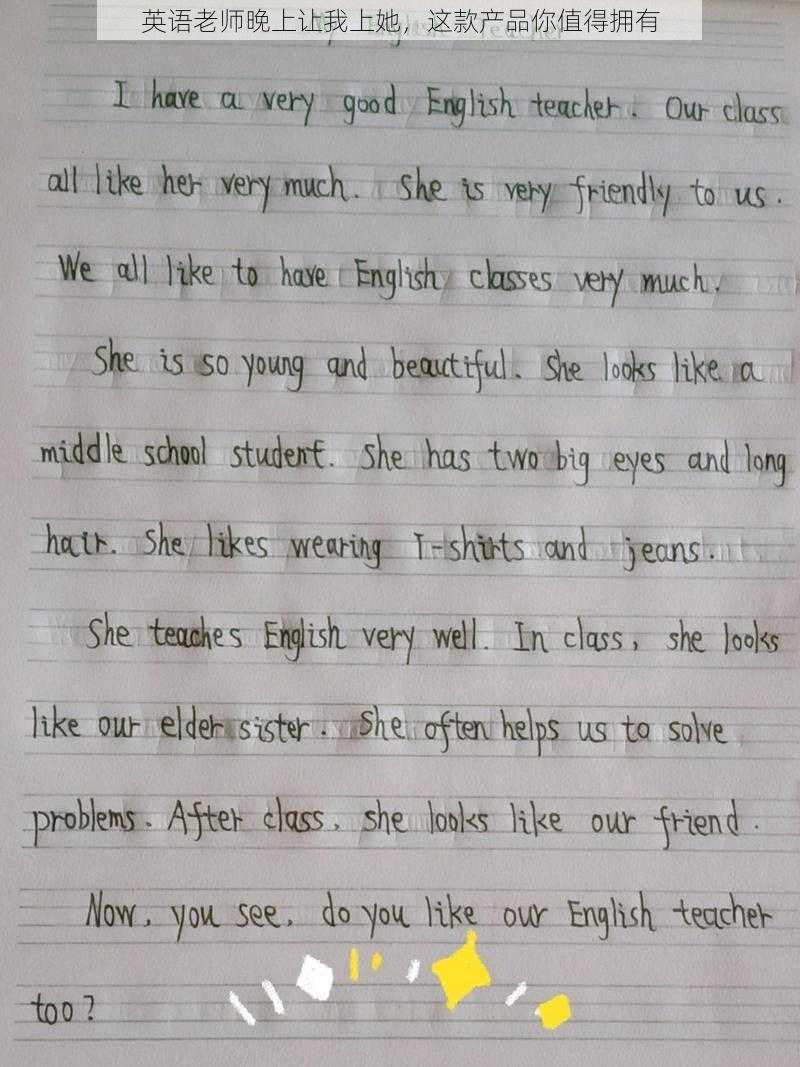 英语老师晚上让我上她，这款产品你值得拥有
I have a very good English teacher. Our class
all like her very much. She is very friendly to us.
We all like to have English classes very much.
She is so young and beautiful. She looks like a
middle school student. She has two big eyes and long
hair. She likes wearing T-shirts and jeans.
She teaches English very well. In class, she looks
like our elder sister. She often helps us to solve
problems. After class, she looks like our friend.
Now, you see, do you like our English teacher
too?